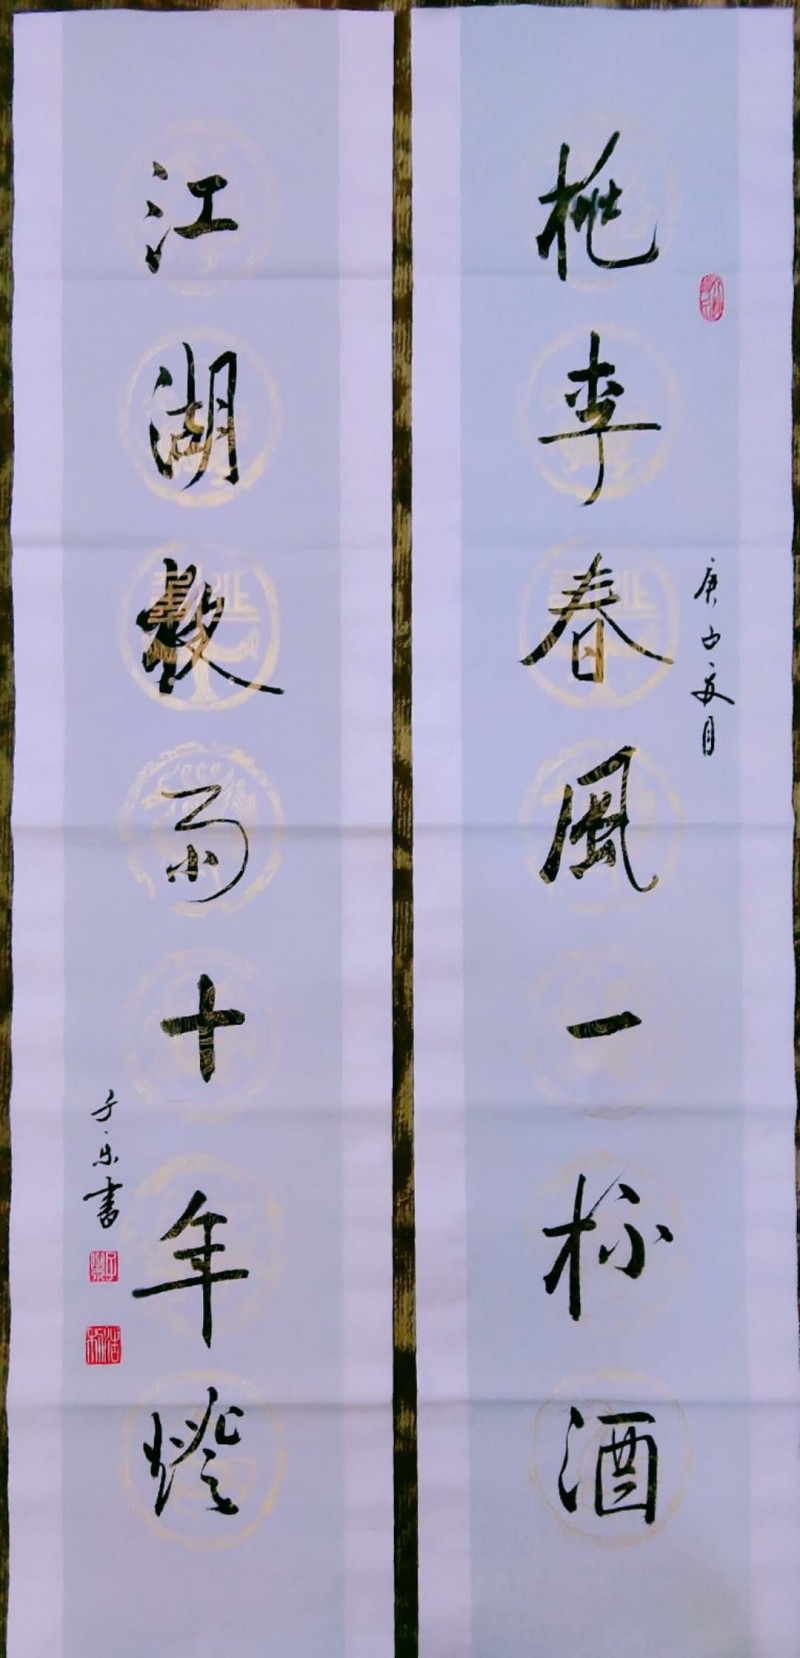 桃李春風一杯酒
庚子夏月
江湖夜雨十年燈
子乐書